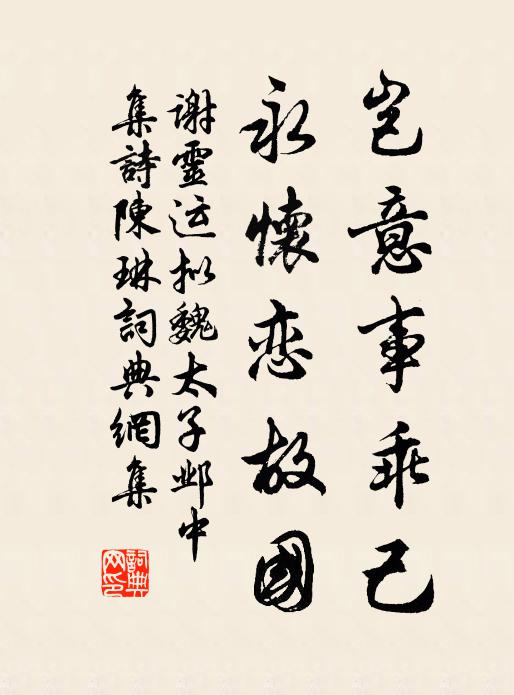 岂意事乖己
永懷恋故國
謝靈运拟魏太子邺中
集詩陳琳詞典網集
詞典
网印